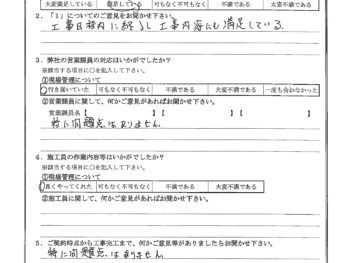 大変満足している 満足している 可もなく不可もなく 不満である 大変不満である
2．「1」についてのご意見をお聞かせ下さい。
工事日程内に終了し工事内容にも満足している。
3．弊社の営業課員の対応はいかがでしたか？
※該当する項目に○を記入して下さい。
①現場管理について
行き届いていた 可もなく不可もなく 不満である 大変不満である 一度も会わなかった
②営業課員に関して、何かご意見があればお聞かせ下さい。
営業課員名【 】 【 】
特に問題点はありません
4．施工員の作業内容等はいかがでしたか？
※該当する項目に○を記入して下さい。
①現場管理について
良くやってくれた 可もなく不可もなく 不満である 大変不満である
②施工員に関して、何かご意見があればお聞かせ下さい。
5．ご契約時点から工事完工まで、何かご意見等がありましたらお聞かせ下さい。
特に問題点はありません